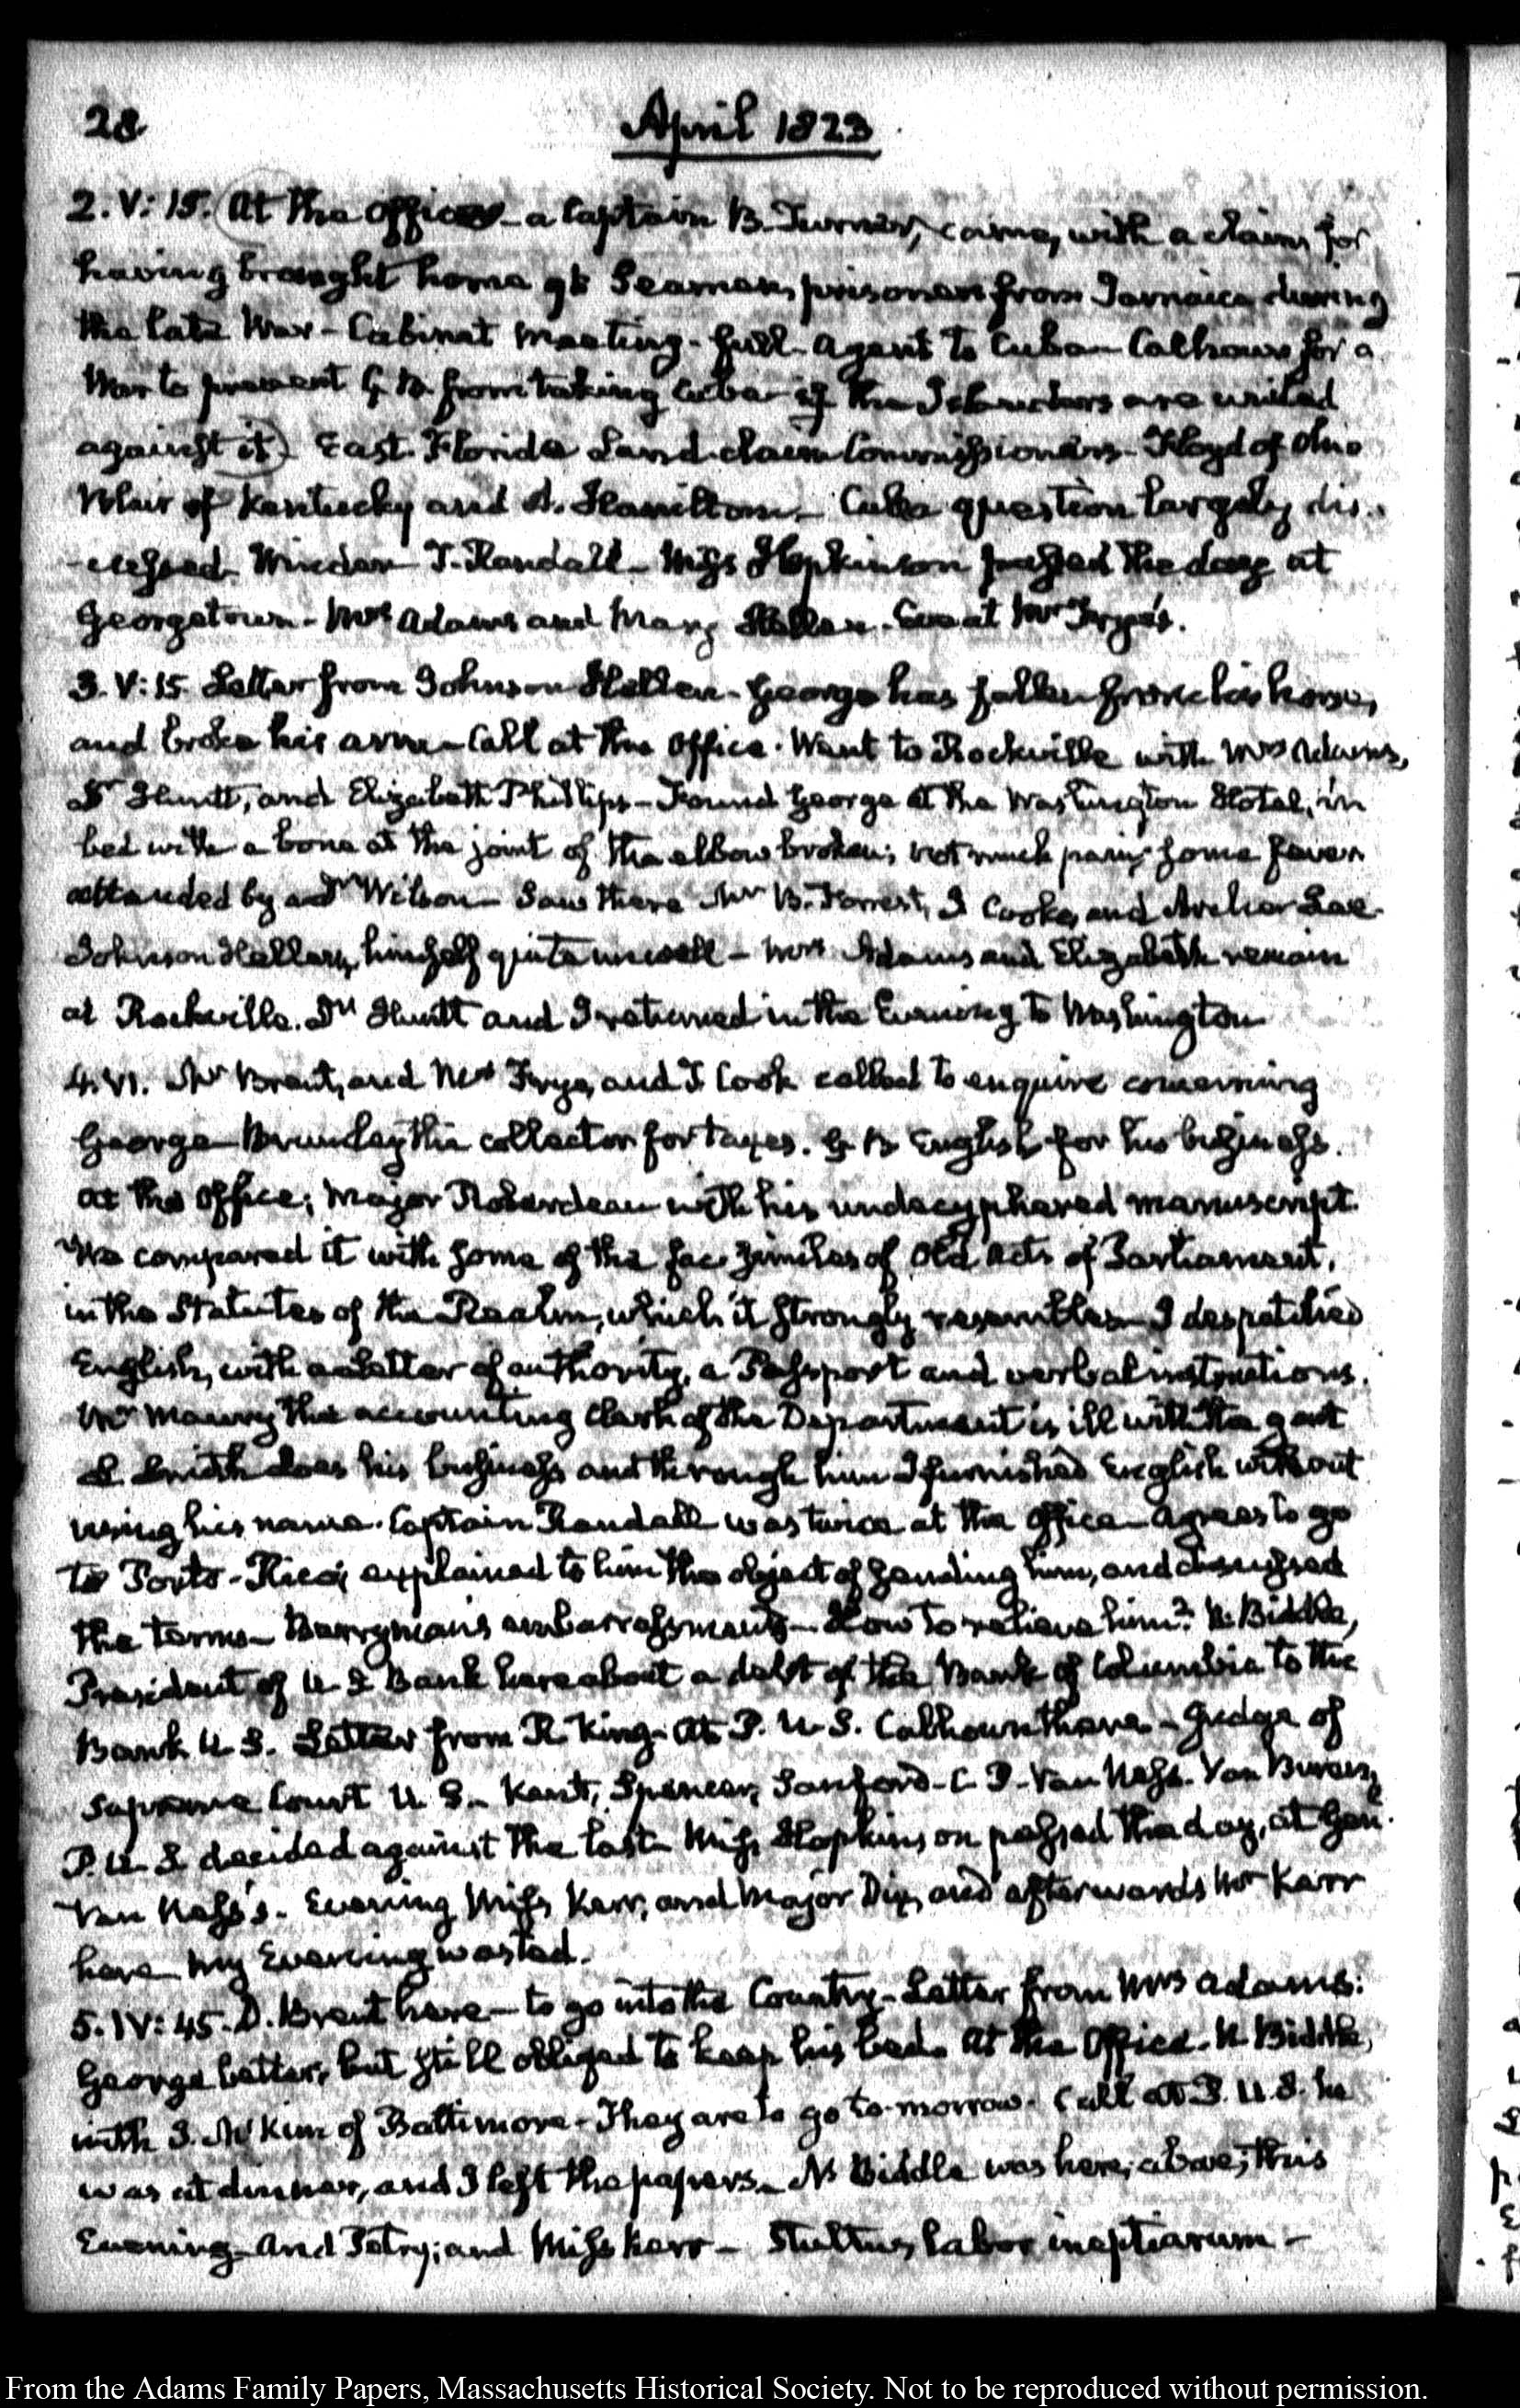 28
April 1823
2. V: 15. At the office - a Captain B. Turner, came, with a claim for
having brought home 96 Seamen, prisoners from Jamaica during
the late War - Cabinet meeting - full - Agent to Cuba - Calhoun for a
War to prevent G. B. from taking Cuba - if the Islanders are united
against it - East Florida Land claim Commissioners - Floyd of Ohio
Blair of Kentucky and A. Hamilton - Cuba question largely dis-
-cussed - Winder - T. Randall - Miss Hopkinson passed the day at
Georgetown - Mrs Adams and Mary Hellen - Eve at Mr Frye's.
3. V: 15. Letter from Johnson Hellen - George has fallen from his horse,
and broke his arm - Call at the Office. Went to Rockville with Mrs Adams,
Dr Huntt, and Elizabeth Phillips - Found George at the Washington Hotel, in
bed with a bone at the joint of the elbow broken; not much pain; some fever
attended by a Dr Wilson - Saw there Mr B. Forrest, J Cooke, and Archer Lee.
Johnson Hellen, himself quite unwell - Mrs Adams and Elizabeth remain
at Rockville. Dr Huntt and I returned in the Evening to Washington
4. VI. Mr Brent, and Mrs Frye, and J. Cook called to enquire concerning
George - Brumley the collector for taxes. G. B. English for his business.
at the Office; Major Roberdeau with his undecyphered manuscript.
We compared it with some of the fac similes of Old Acts of Parliament,
in the Statutes of the Realm, which it strongly resembles - I despatched
English, with a Letter of authority, a Passport and verbal instructions.
Mr Maury the accounting Clerk of the Department is ill with the gout
Smith does his business and through him I furnished English without
using his name. Captain Randall was twice at the Office - agrees to go
to Porto-Rico; explained to him the object of sending him, and discussed
the terms - Berryman's embarrassments - How to relieve him? N. Biddle,
President of U. S Bank here about a debt of the Bank of Columbia to the
Bank U. S. Letter from R King - At P. U. S. Calhoun there - Judge of
Supreme Court U. S. - Kent, Spencer, Sanford - C. P. Van Ness. Van Buren,
P. U. S decided against the last - Miss Hopkinson passed the day, at Genl.
Van Ness's - Evening Miss Kerr, and Major Dix, and afterwards Mr Kerr
here - My Evening wasted.
5. IV: 45. D. Brent here - to go into the Country - Letter from Mrs Adams:
George better, but still obliged to keep his bed. At the Office. N. Biddle,
with I. McKim of Baltimore - They are to go to-morrow. Call at P. U. S. he
was at dinner, and I left the papers. N. Biddle was here, above, this
Evening - And Petry; and Miss Kerr - Stultus labor ineptiarum -
From the Adams Family Papers, Massachusetts Historical Society. Not to be reproduced without permission.